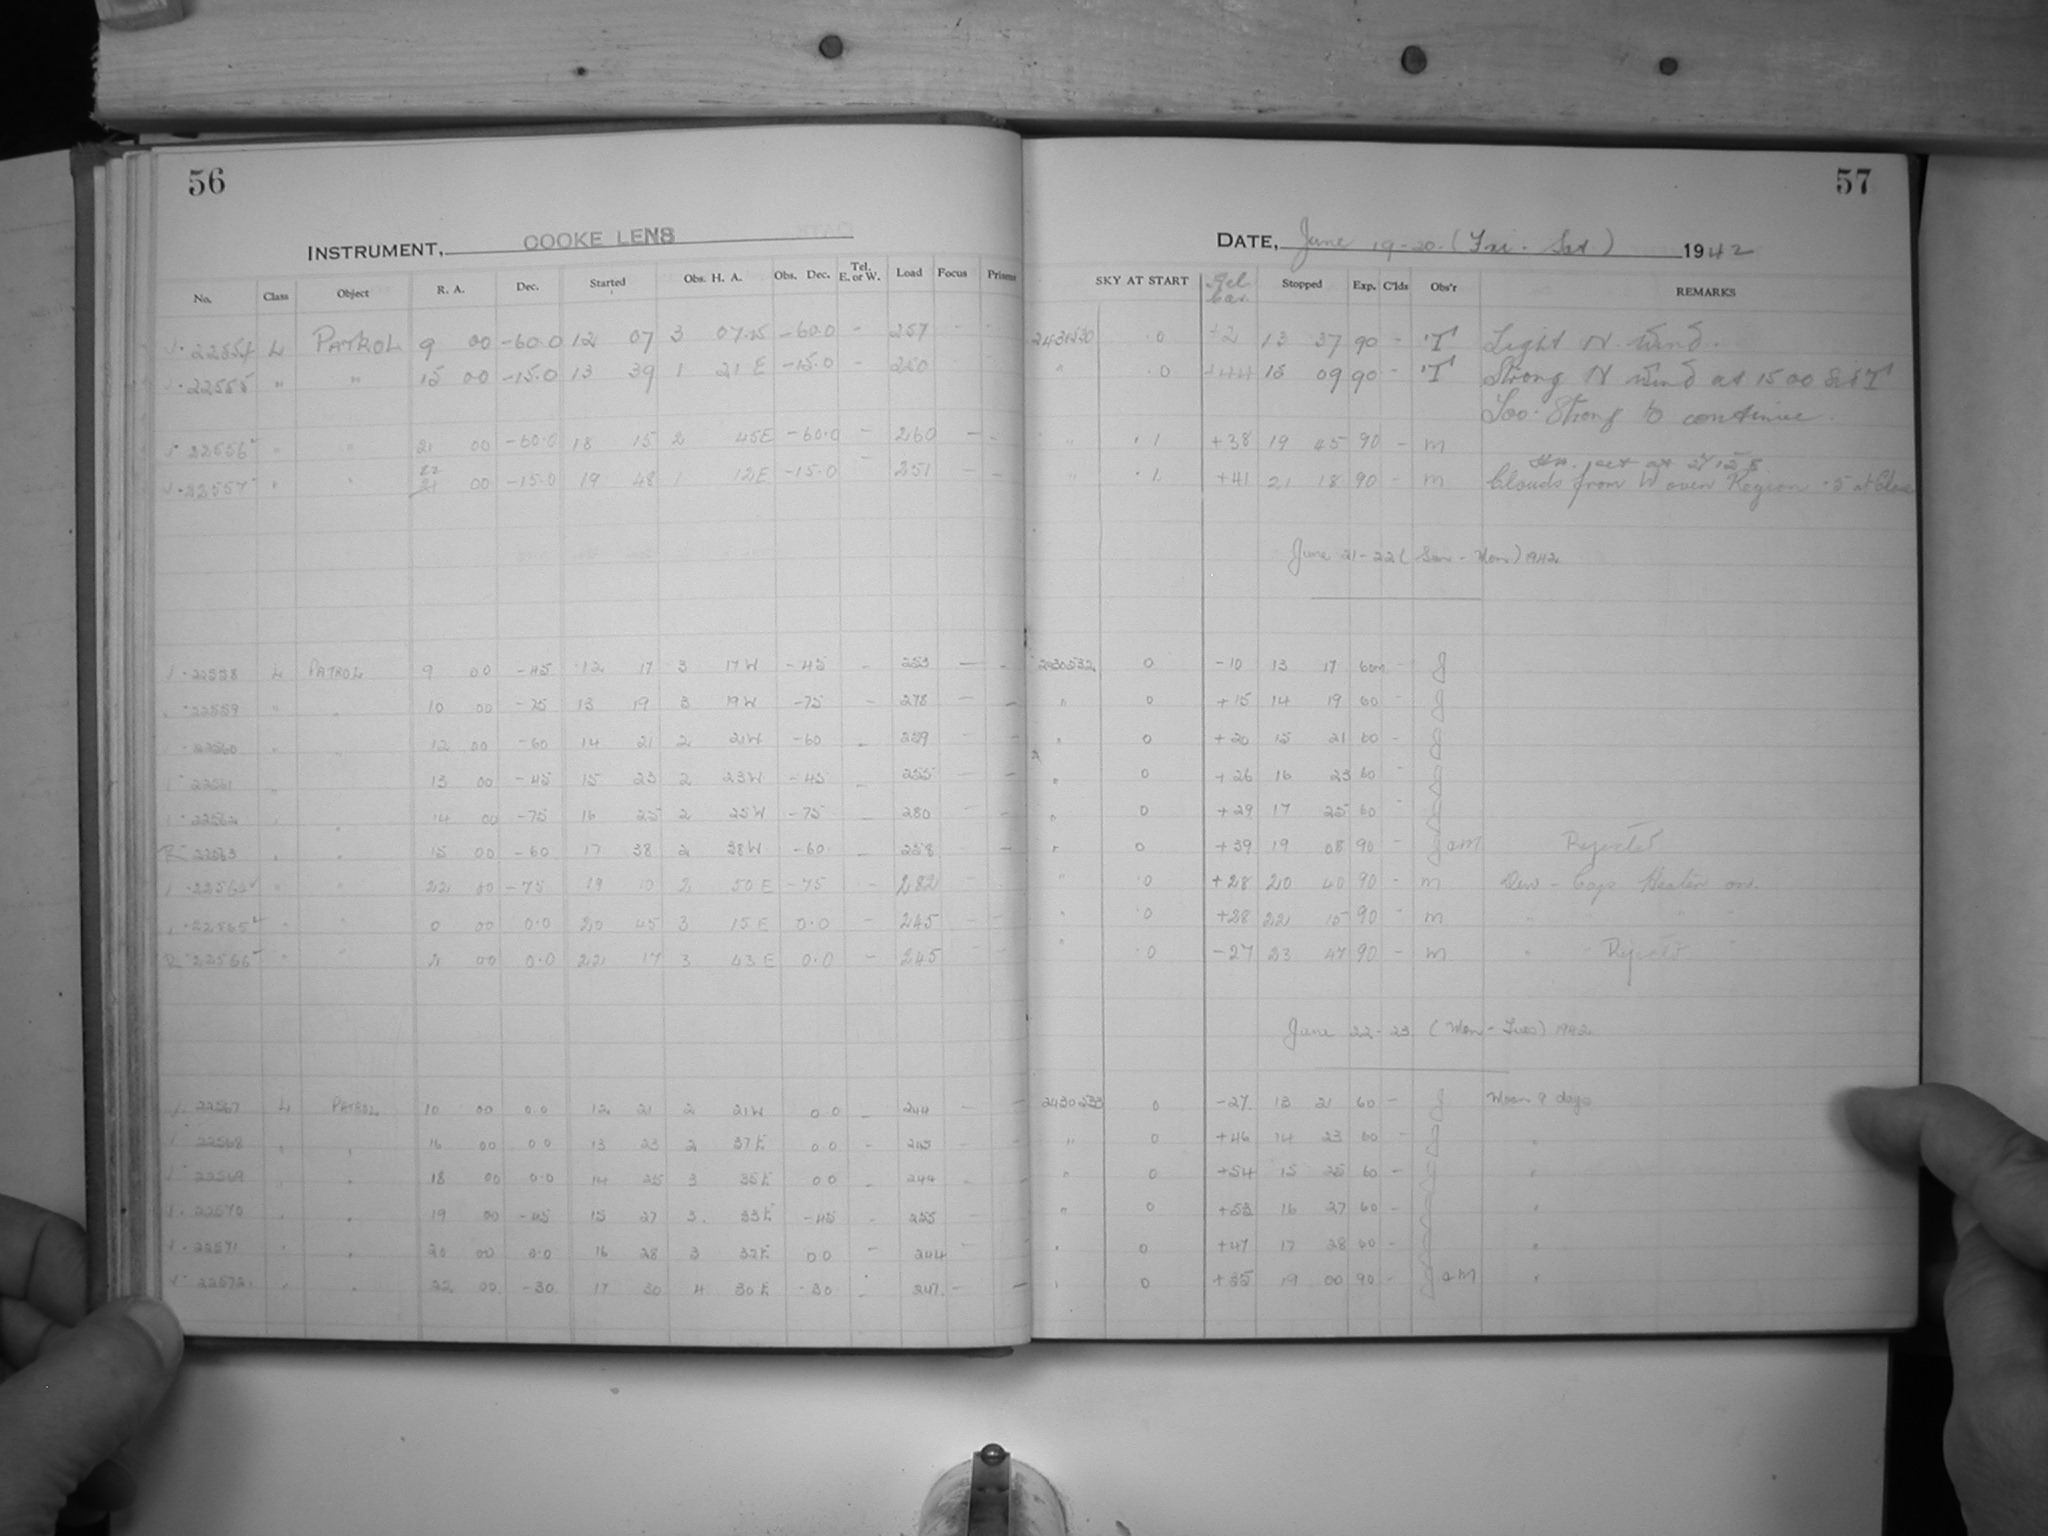 56
INSTRUMENT, COOKE LENS
No. Class Object R. A. Dec. Started Obs. H. A. Obs. Dec. Tel. E. or W. Load Focus Prisms
22554 L PATROL 9 00 -60.0 12 07 3 -60.0 - 257
22555 " " 15 00 -15.0 13 39 1 21 E -15.0 - 250
22556 " " 21 00 -60.0 18 15 2 45E -60.0 - 260 - -
22557 " " 22 00 -15.0 19 48 1 12E -15.0 - 251 - -
22558 L PATROL 9 00 -45 12 17 3 17W -45 - 253 - -
22559 " " 10 00 -75 13 19 3 19W -75 - 278 - -
22560 " " 12 00 -60 14 21 2 21W -60 - 259 - -
22561 " " 13 00 -45 15 23 2 23W -45 - 255 - -
22562 " " 14 00 -75 16 25 2 25W -75 - 280 - -
R 22563 " " 15 00 -60 17 38 2 38W -60 - 258 - -
22564 " " 22 00 -75 19 10 2 50 E -75 - 282 - -
22565 " " 0 00 0.0 20 45 3 15 E 0.0 - 245 - -
R 22566 " " 00 0.0 22 17 3 43 E 0.0 - 245 - -
22567 L PATROL 10 00 0.0 12 21 2 21W 0.0 - 244 - -
22568 " " 16 00 0.0 13 23 2 37E 0.0 - - -
22569 " " 18 00 0.0 14 25 3 35E 0.0 - 244 - -
22570 " " 19 00 -45 15 27 3 33E -45 - 255 - -
22571 " " 20 00 0.0 16 28 3 32E 0.0 - 244 - -
22572 " " 22 00 -30 17 30 4 30E -30 - 247 - -
57
DATE, June 19-20. (Fri. Sat) 1942
SKY AT START Stopped Exp. C'lds Obs'r REMARKS
.0 +2 13 37 90 - T Light N. Wind.
" .0 +44 15 09 90 - T Strong N Wind at 15 00 Sid T
Too Strong to continue.
" .1 +38 19 45 90 - m
" .1 +41 21 18 90 - m Clouds from W over Region .5 at Close
June 21-22 (Sun-Mon) 1942
2430532 0 -10 13 17 60m - J
" 0 +15 14 19 60 - J
" 0 +20 15 21 60 - J
" 0 +26 16 23 60 - J
" 0 +29 17 25 60 - J
" 0 +39 19 08 90 - J a M Rejected
" .0 +28 20 40 90 - m Dew-Cap Heater on.
" .0 +28 22 15 90 - m " " " "
" .0 -27 23 47 90 - m " " Rejected "
June 22-23 (Mon-Tues) 1942
2430533 0 -27 13 21 60 - J Moon 9 days
" 0 +46 14 23 60 - J "
" 0 +54 15 25 60 - J "
" 0 +53 16 27 60 - J "
" 0 +47 17 28 60 - J "
" 0 +35 19 00 90 - J a M "